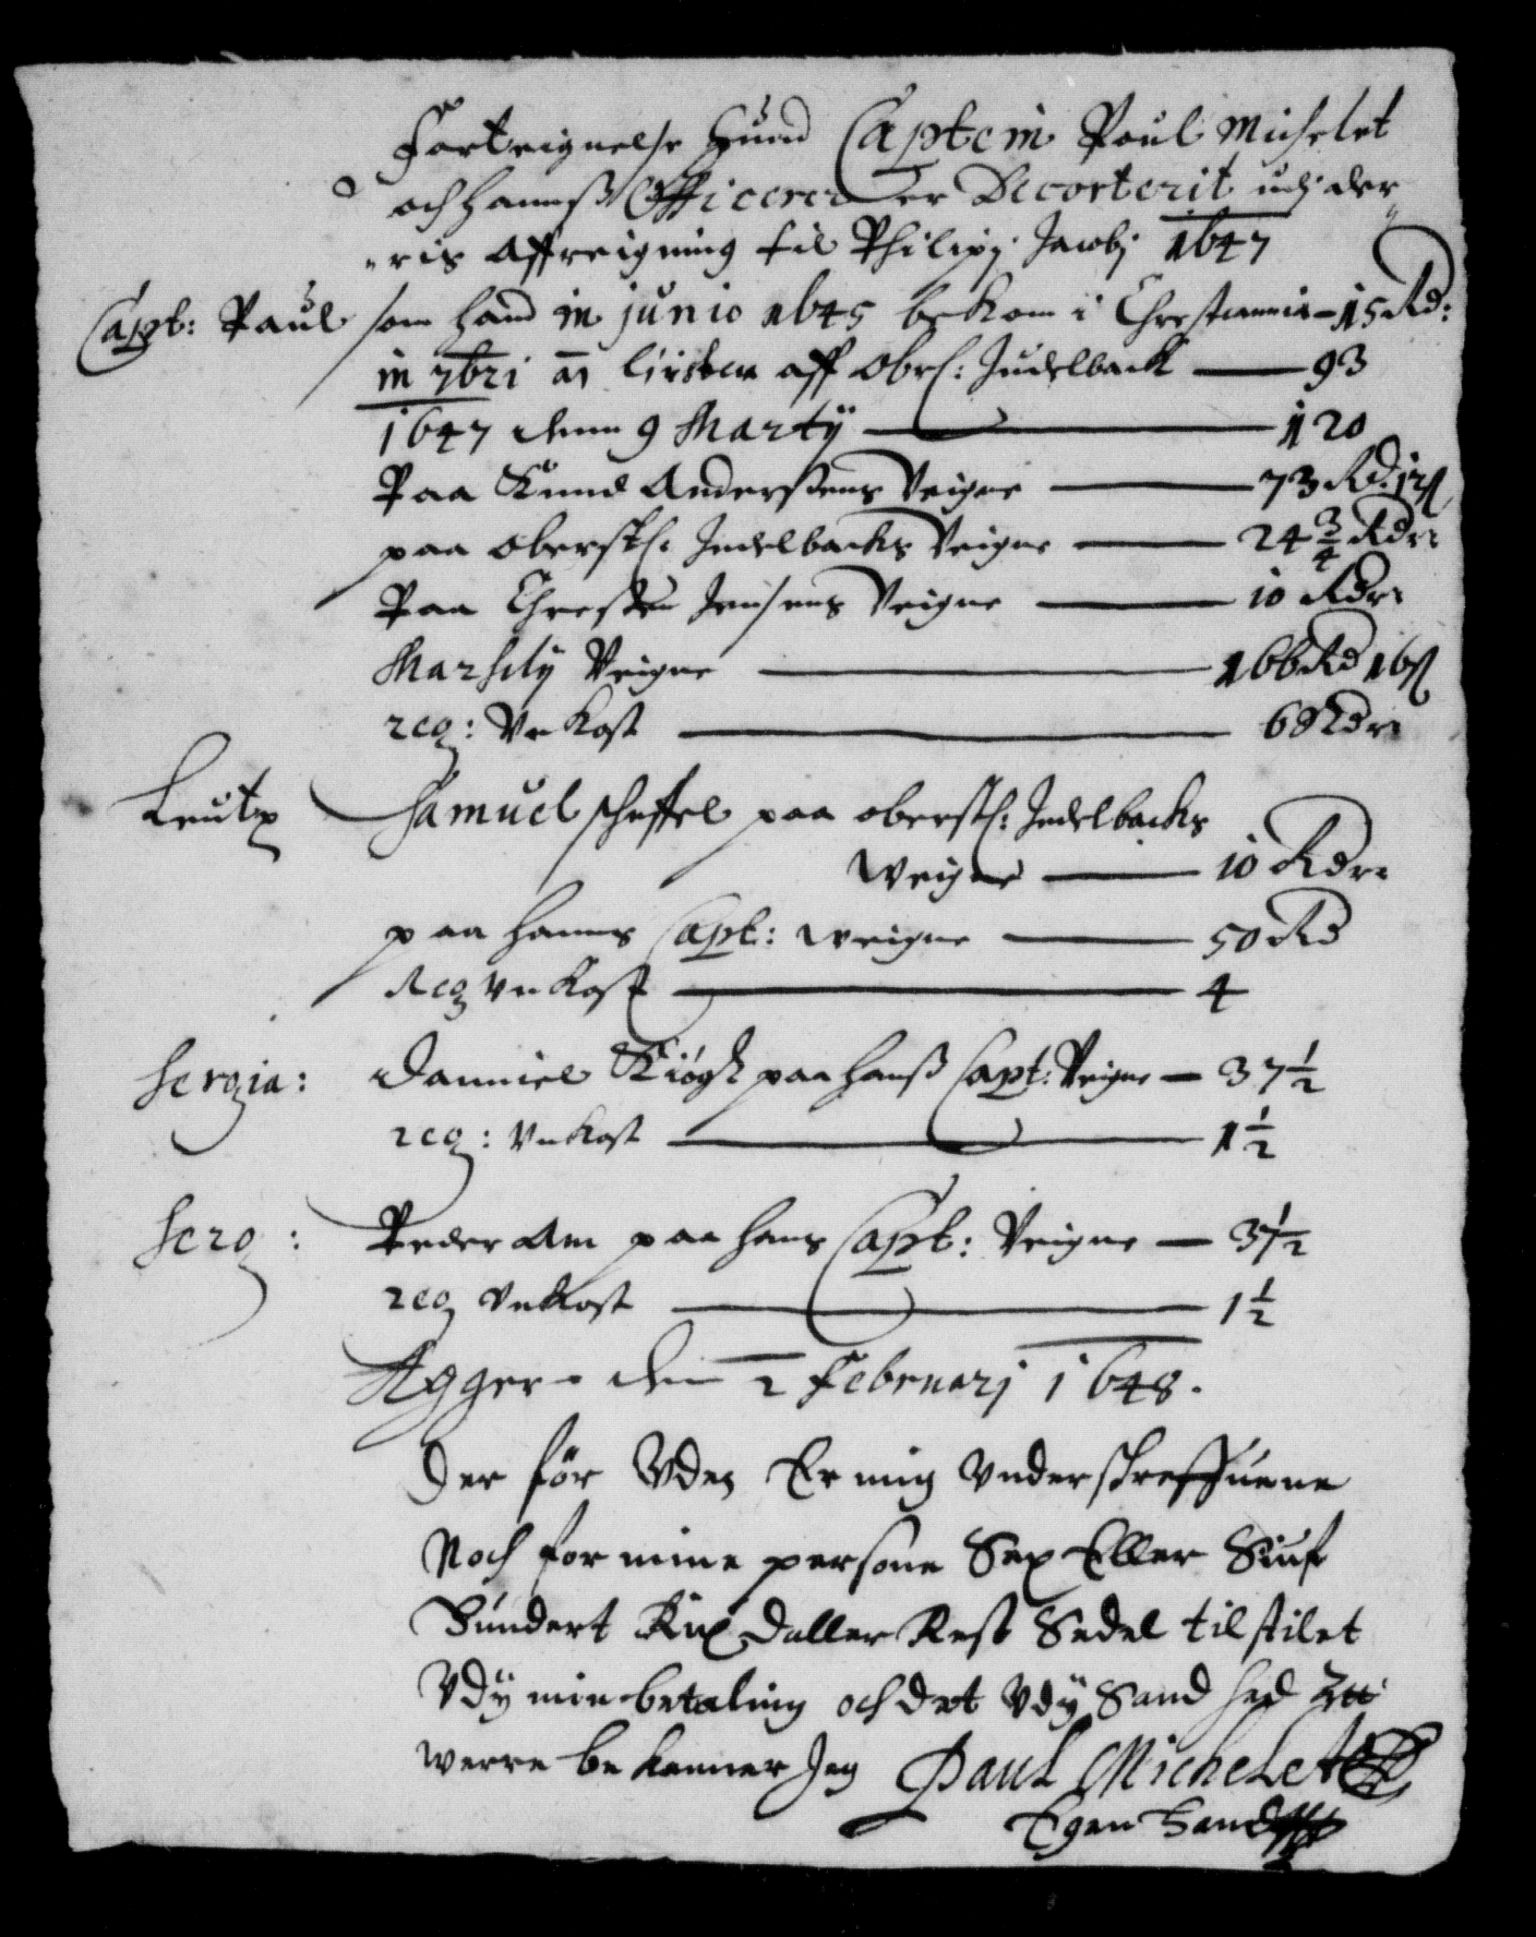 Forteignelse Huad Captein Poul Michelet
och hannß Officerer er Decorterit udj der¬
¬ris Affreigning til Philipj Jacobj 1647
Capt: Paul som hand in junio 1645 bekom i Chrestiania – 15 Rd:
in 7bri aff Obrl: Judelback — 93
1647 denn 9 Martÿ — 120
Paa Knud Anderssens Veigne — 73 Rd: 12 ß
paa Oberstl: Judelbacks Veigne — 24 3/4 Rdr
Paa Chresten Jensens Veigne — 10 Rdr
Marsilÿ Veigne — 166 Rd 16 ß
reg: Vnkost — 6 Rdr
Leutn Samuel Scheffel paa Oberstl: Judelbacks
Weigne — 10 Rdr
paa hanns Capt: Weigne — 50 Rd
Reg Vnkost — 4
Sergia: Danniel paa hanß Capt: Veigne – 37 1/2
reg: Vnkost — 1 1/2
Serg: Peder Am paa hans Capt: Veigne – 37 1/2
reg Vnkost — 1 1/2
Agger– den 2 Februarj 1648.
Der för Vden Er mig Vnderschreffuene
Noch for mine persone Sex Eller Siuf
Hundert Rix Daller Rest Sedel tilstilet
Vdÿ min betaling och det Vdÿ Sandhed
werre bekenner Jeg Paul Michelet
Egen Hand